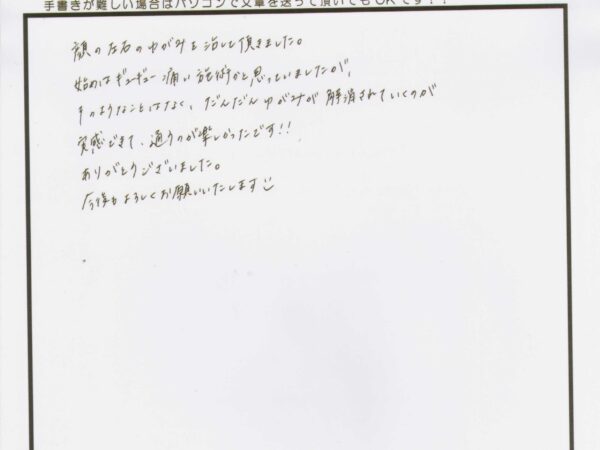 手書きが難しい場合はパソコンで文章を送って頂いてもOKです!!
顔の左右のゆがみを治して頂きました。
始めはギューギュー痛い施術かと思っていましたが、
そのようなことはなく、だんだんゆがみが解消されていくのが
実感できて、通うのが楽しかったです!!
ありがとうございました。
今後もよろしくお願いいたします